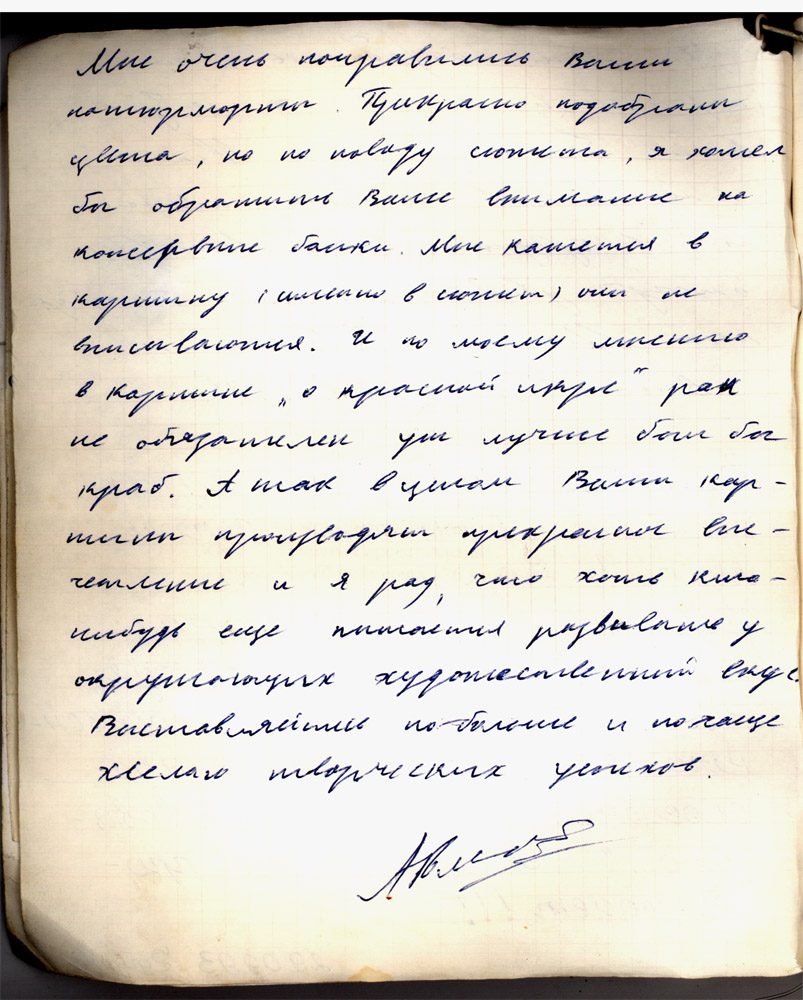 Мне очень понравились Ваши
натюрморты. Прекрасно подобраны
цвета, но по поводу сюжета, я хотел
бы обратить Ваше внимание на
консервные банки. Мне кажется в
картину (именно в сюжет) они не
вписываются. И по моему мнению
в картине „о красной икре" рак
не обязателен уж лучше был бы
краб. А так в целом Ваши кар-
тины производят прекрасное впе-
чатление и я рад, что хоть кто-
нибудь еще пытается развивать у
окружающих художественный вкус.
Выставляйтесь побольше и почаще
Желаю творческих успехов.